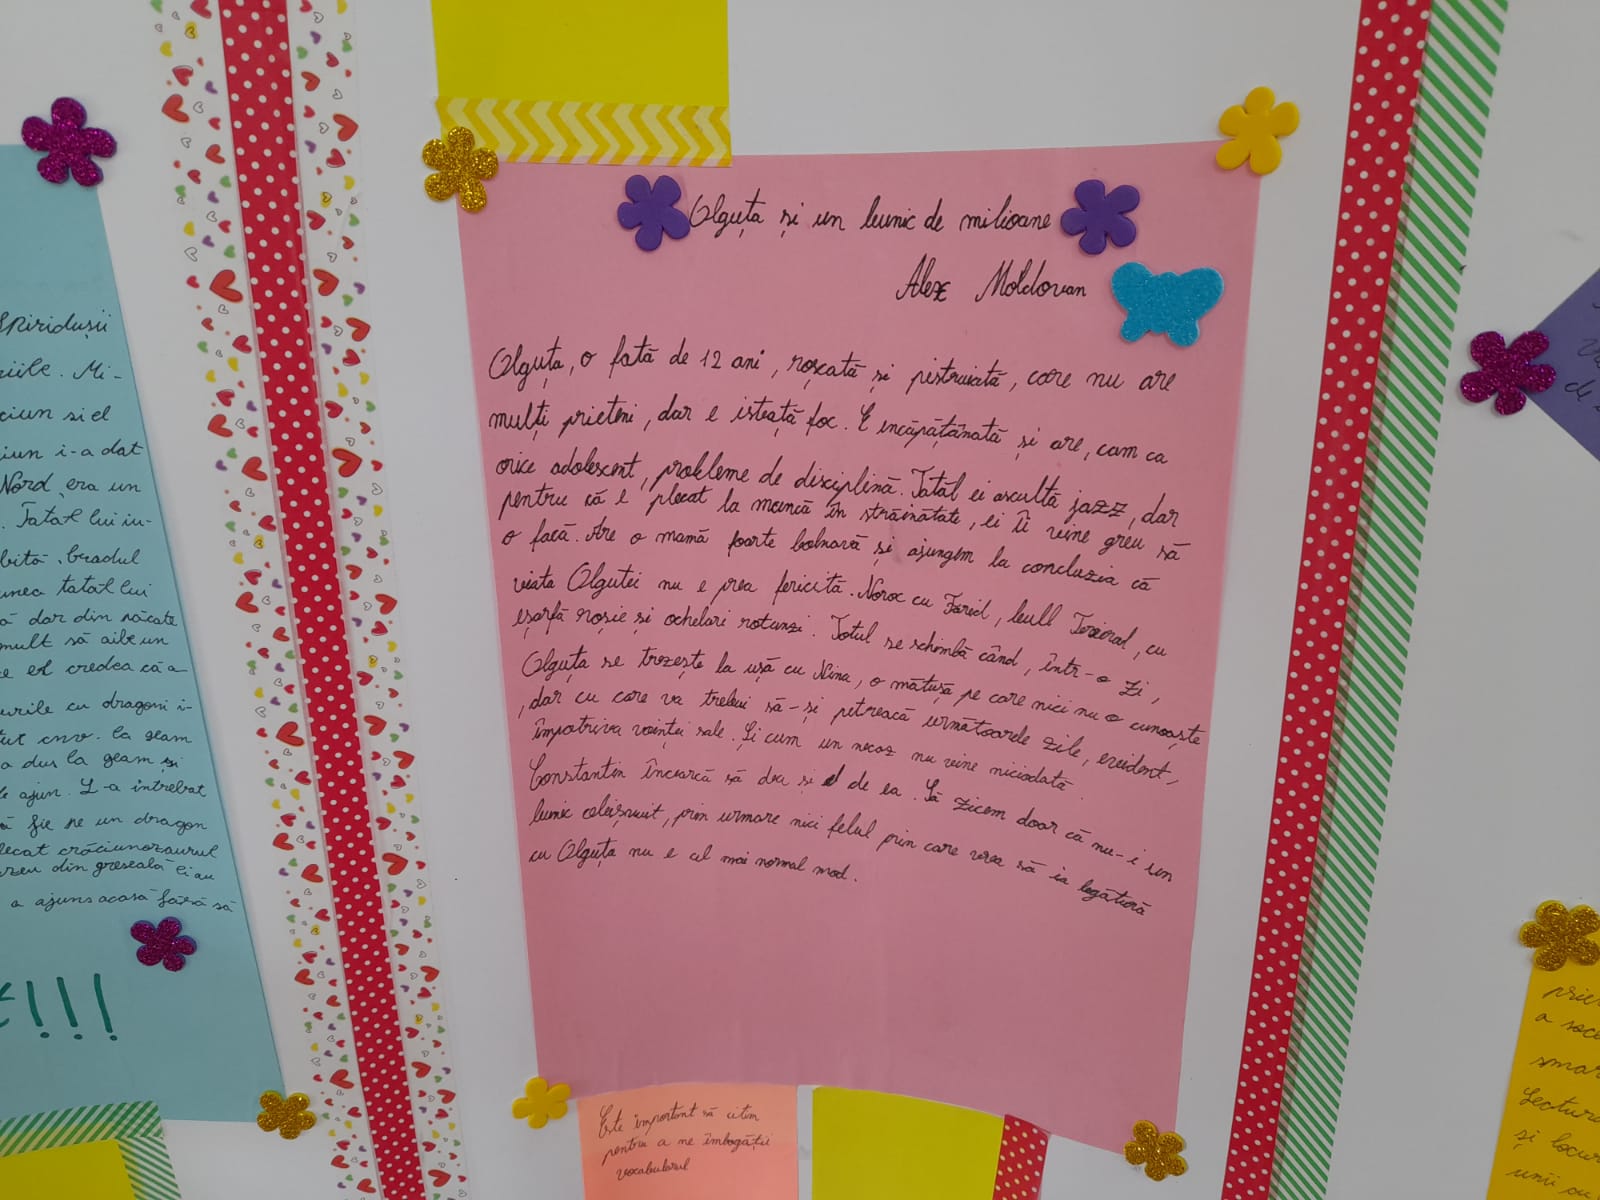 Olguța și un bunic de milioane
Alex Moldovan
Olguța, o fată de 12 ani, roșcată și pistruiată, care nu are
mulți prieteni, dar e isteață foc. E încăpățânată și are, cam ca
orice adolescent, probleme de disciplină. Tatăl ei ascultă jazz, dar
pentru că e plecat la muncă în străinătate, ei îi vine greu să
o facă. Are o mamă foarte bolnavă și ajungem la concluzia că
viata Olgutei nu e prea fericită. Noroc cu Farid, bull cu
eșarfă roșie și ochelari rotunzi. Totul se schimbă când, într-o zi,
Olguța se trezește la ușă cu Nina, o mătușă pe care nici nu o cunoaște
, dar cu care va trebui să-și petreacă următoarele zile, evident,
împotriva voinței sale. Și cum un necaz nu vine niciodată
Constantin încearcă să dea și el de ea. Să zicem doar că nu-i un
bunic obișnuit, prin urmare nici felul prin care vrea să ia legătură
cu Olguța nu e cel mai normal mod.
Este important să citim
pentru a ne îmbogății
vocabularul
Spiriduşii
Mi-
ciun si el
i-a dat
Nord, era un
Tatăl lui
bradul
tatăl lui
dar din păcate
mult să aibe un
el credea că a
cu dragoni i-
la geam
a dus la geam și
ajun. L-a întrebat
fie pe un dragon
crăciunozaurul
din greseală ei au
a ajuns acasă fără să
!!!
de
a
și